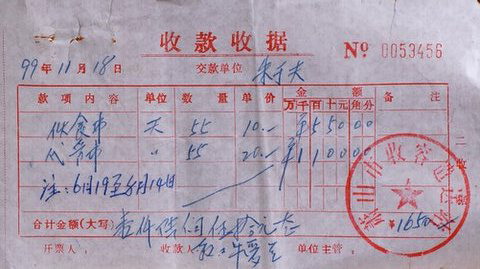 收款收据
№ 0053456
99年11月18日
交款单位
款项内容 单位 数量 单价 金额 备注
万千百十元角分
伙食费 天 55 10.— ¥55000
55 20.— ¥110000
注：6月19至8月14日
合计金额(大写) 壹仟陆佰伍拾元
¥1650
开票人 收款人 单位主管